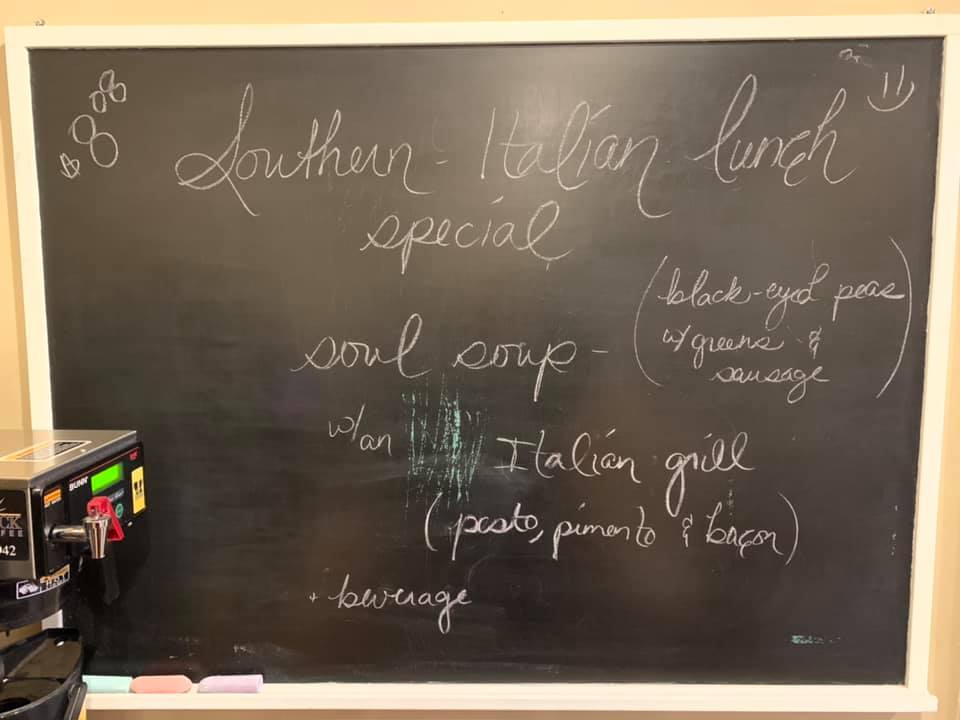 Southern-Italian lunch
special
soul soup -
(black-eyed peas
w/greens &
sausage)
w/an Italian grill
(pesto, pimento & bacon)
+ beverage
BUNN